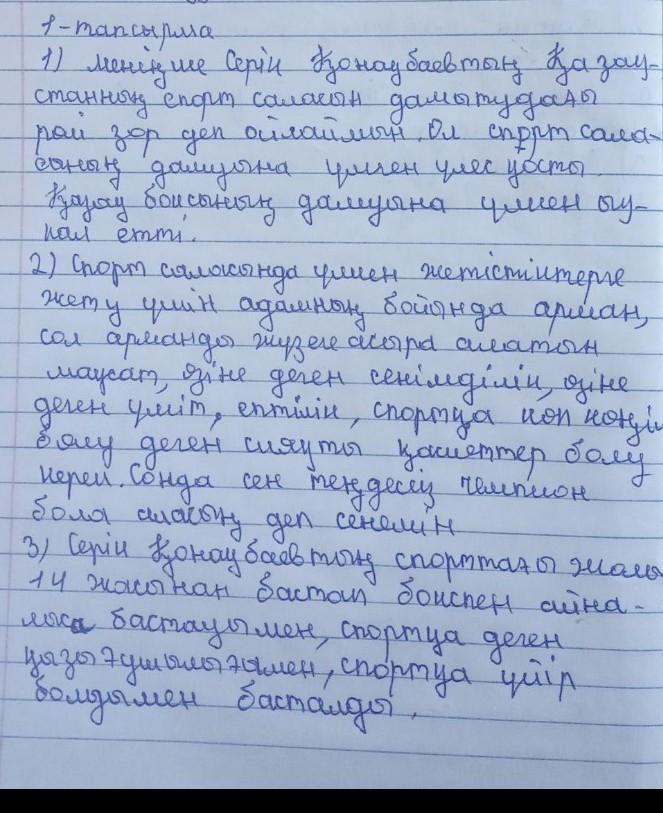 1-тапсырма
1) меніңше Серік Қонақбаевтың Қазақ-
станның спорт саласын дамытудағы
рөлі зор деп ойлаймын. Ол спорт сала-
сының дамуына үлкен үлес қосты.
Қазақ боксының дамуына үлкен ық-
пал етті.
2) Спорт саласында үлкен жетістіктерге
жету үшін адамның бойында арман,
сол арманды жүзеге асыра алатын
мақсат, өзіне деген сенімділік, өзіне
деген үміт, ептілік, спортқа көп көңіл
бөлу деген сияқты қасиеттер болу
керек. Сонда сен теңдесіз чемпион
бола аласың деп сенемін
3) Серік Қонақбаевтың спорттағы жолы
14 жасынан бастап бокспен айна-
лыса бастауымен, спортқа деген
қызығушылығымен, спортқа үйір
болдымен басталды.